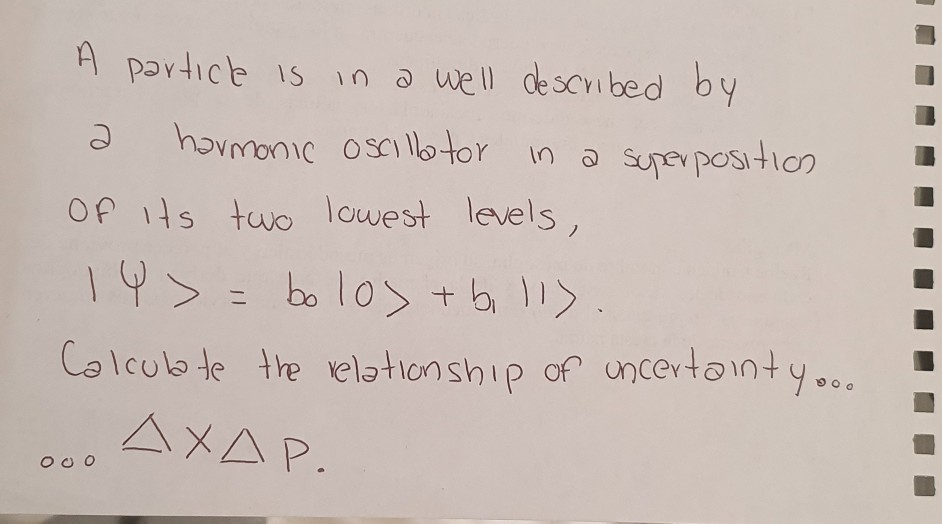 A particle is in a well described by
a harmonic oscillator in a superposition
of its two lowest levels,
|Ψ> = b₀|0> + b₁|1>.
Calculate the relationship of uncertainty...
... ΔXΔP.